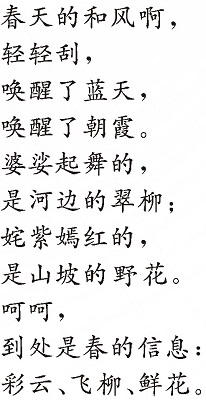 春天的和风啊，
轻轻刮，
唤醒了蓝天，
唤醒了朝霞。
婆娑起舞的，
是河边的翠柳；
姹紫嫣红的，
是山坡的野花。
呵呵，
到处是春的信息：
彩云、飞柳、鲜花。